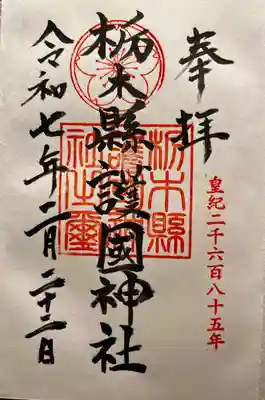 奉拝
皇紀二千六百八十五年
栃木縣護國神社
栃木縣護國神社之璽
令和七年二月二十二日